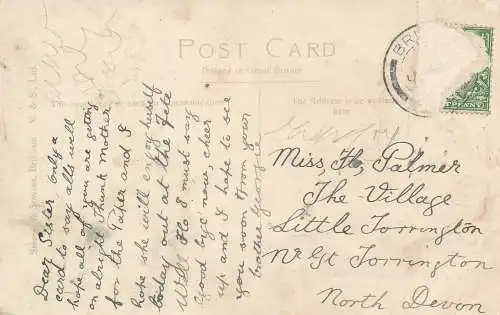 POST CARD
Printed in Great Britain
BRI
PENNY
The Address to be written here
Dear Sister only a
card to say alls well
hope all of you are getting
on alright thank mother
for the Paper and I
hope she will enjoy herself
today out at the Fete
Well Flo I must say
Good bye now, cheer
up and I hope to see
you soon from your
brother Georgie
Miss, Flo, Palmer
The Village
Little Torrington
Nr Gt Torrington
North Devon